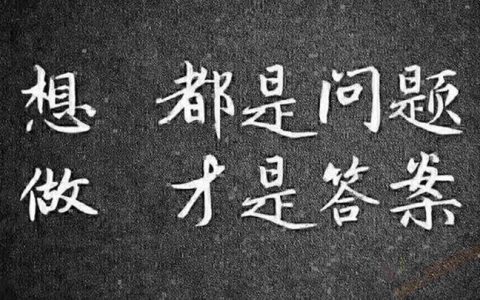 想 都是问题
做 才是答案